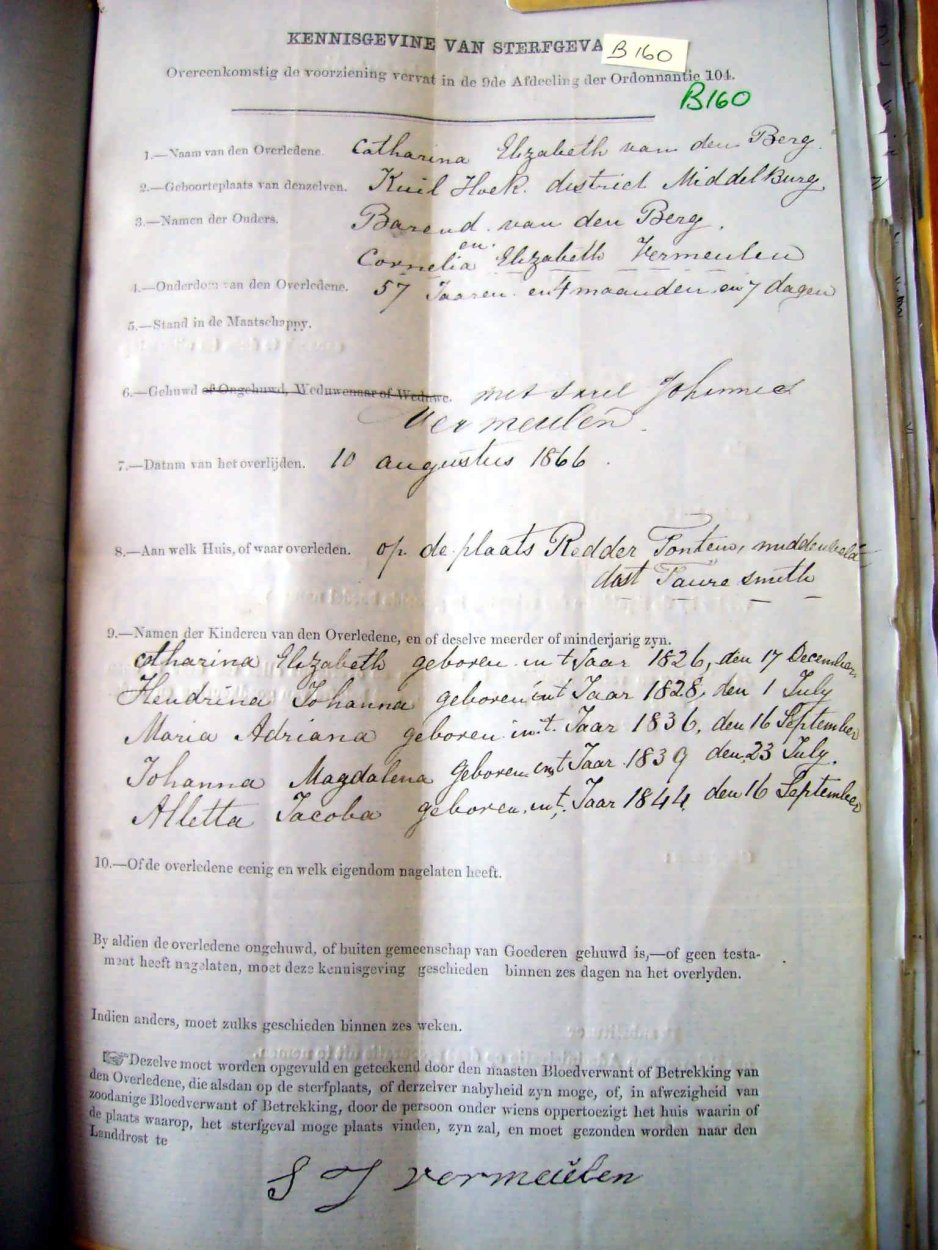 KENNISGEVINE VAN STERFGEVA
B 160
Overeenkomstig de voorziening vervat in de 9de Afdeeling der Ordonnantie 104.
B160
1.—Naam van den Overledene. Catharina Elizabeth van den Berg.
2.—Geboorteplaats van denzelven. Kuil Hoek district Middelburg
3.—Namen der Ouders. Barend van den Berg,
en
Cornelia Elizabeth Vermeulen
4.—Onderdom van den Overledene. 57 Jaaren en 4 maanden en 7 dagen
5.—Stand in de Maatschappy.
6.—Gehuwd of Ongehuwd, Weduwenaar of Weduwe. met Sarel Johannes
Vermeulen.
7.—Datum van het overlijden. 10 augustus 1866.
8.—Aan welk Huis, of waar overleden. op de plaats Redder Fontein,
dist Faure smith
9.—Namen der Kinderen van den Overledene, en of deselve meerder of minderjarig zyn.
Catharina Elizabeth geboren in t Jaar 1826, den 17 December
Hendrina Johanna geboren int Jaar 1828, den 1 July
Maria Adriana geboren in t. Jaar 1836, den 16 September
Johanna Magdalena geboren int Jaar 1839 den 23 July.
Alletta Jacoba geboren int. Jaar 1844 den 16 September
10.—Of de overledene eenig en welk eigendom nagelaten heeft.
By aldien de overledene ongehuwd, of buiten gemeenschap van Goederen gehuwd is,—of geen testa-
ment heeft nagelaten, moet deze kennisgeving geschieden binnen zes dagen na het overlyden.
Indien anders, moet zulks geschieden binnen zes weken.
☞Dezelve moet worden opgevuld en geteekend door den naasten Bloedverwant of Betrekking van
den Overledene, die alsdan op de sterfplaats, of derzelver nabyheid zyn moge, of, in afwezigheid van
zoodanige Bloedverwant of Betrekking, door de persoon onder wiens oppertoezigt het huis waarin of
de plaats waarop, het sterfgeval moge plaats vinden, zyn zal, en moet gezonden worden naar den
Landdrost te
S J vermeülen